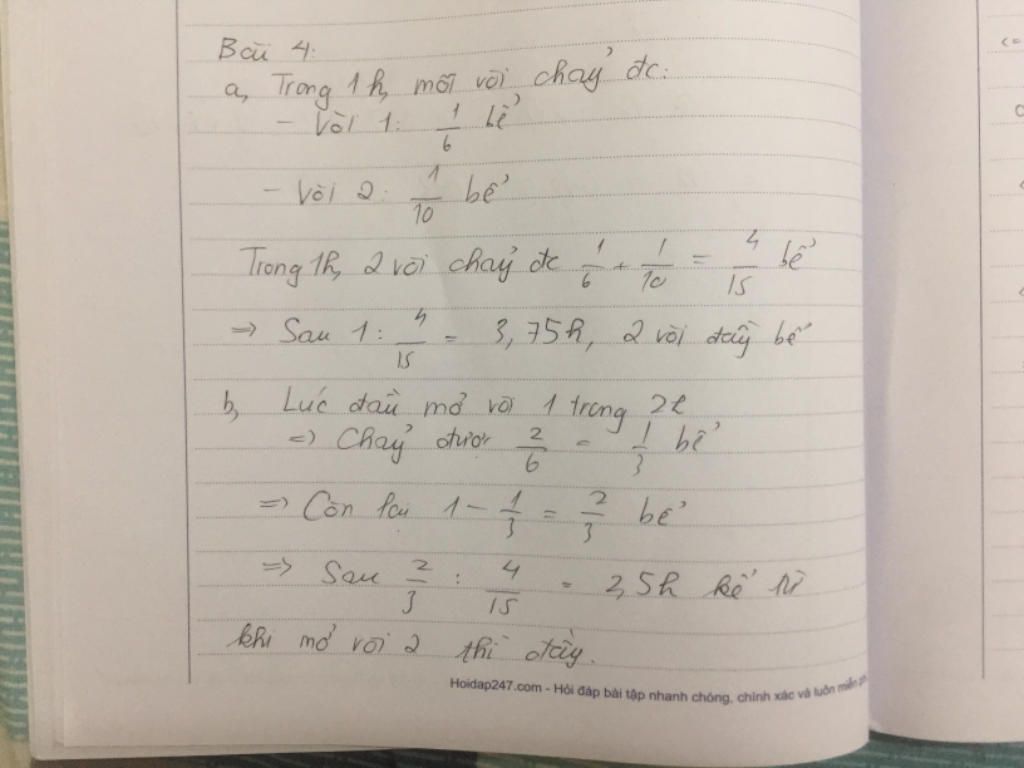 Bài 4:
a, Trong 1h, mỗi vòi chảy đc:
- Vòi 1: 1/6 bể
- Vòi 2: 1/10 bể
Trong 1h, 2 vòi chảy đc 1/6 + 1/10 = 4/15 bể
=> Sau 1 : 4/15 = 3,75h, 2 vòi đầy bể
b, Lúc đầu mở vòi 1 trong 2h
=> Chảy được 2/6 = 1/3 bể
=> Còn lại 1 - 1/3 = 2/3 bể
=> Sau 2/3 : 4/15 = 2,5h kể từ
khi mở vòi 2 thì đầy.
Hoidap247.com - Hỏi đáp bài tập nhanh chóng, chính xác và luôn miễn